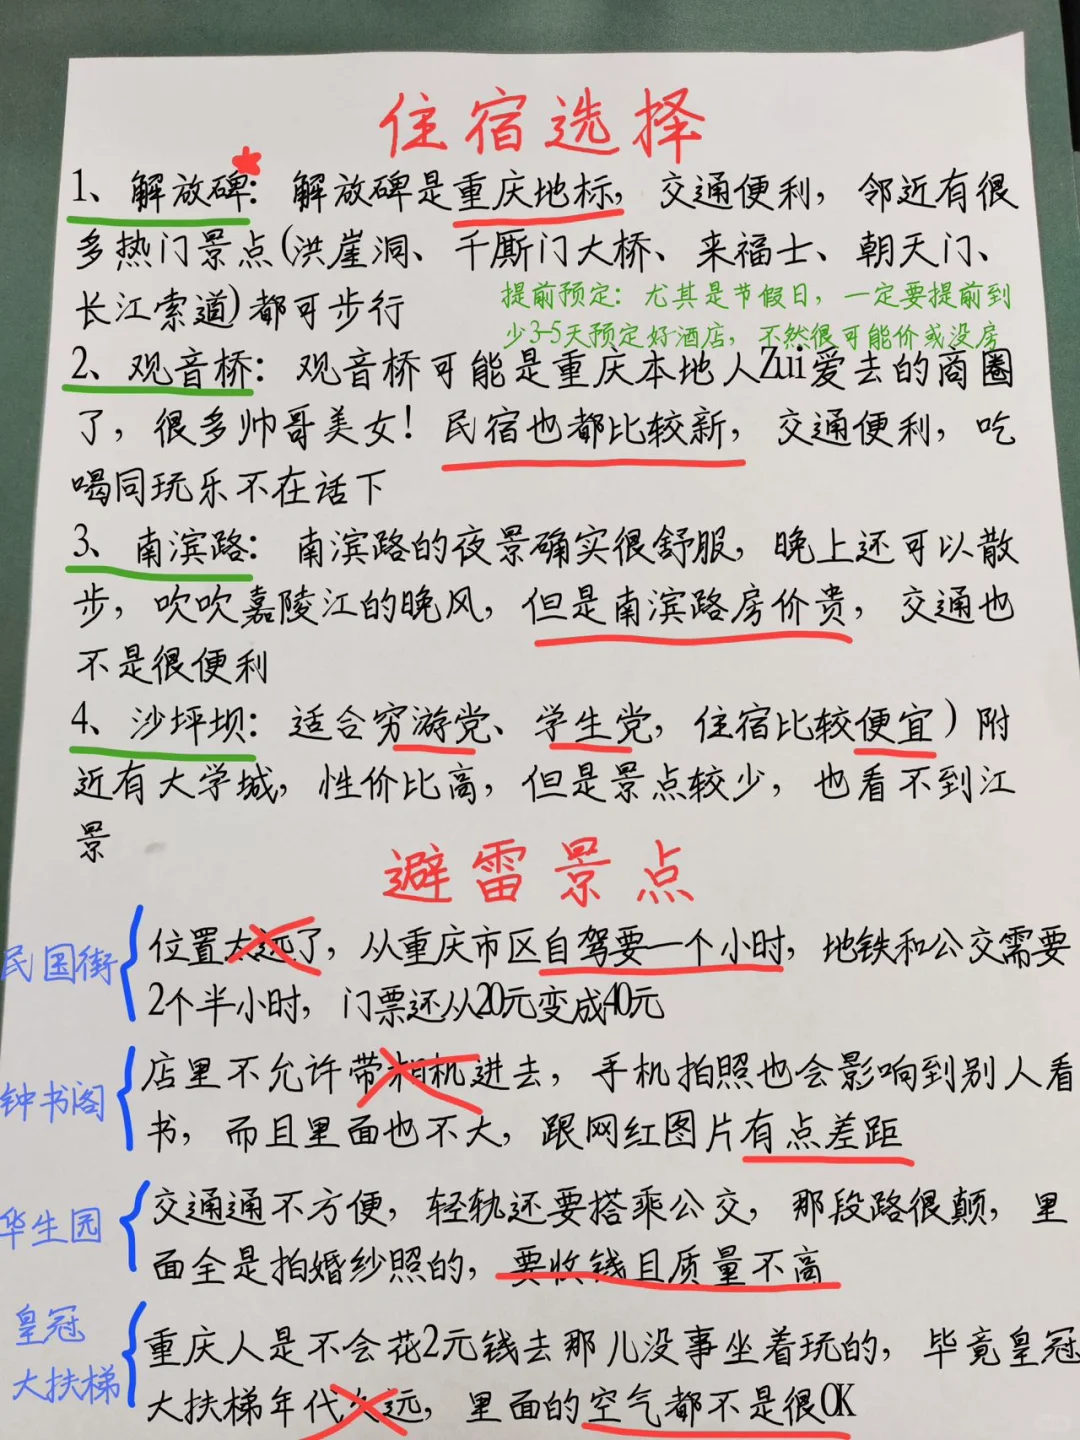 住宿选择
1、解放碑：解放碑是重庆地标，交通便利，邻近有很
多热门景点(洪崖洞、千厮门大桥、来福士、朝天门、
长江索道)都可步行
提前预定：尤其是节假日，一定要提前到
少3-5天预定好酒店，不然很可能价或没房
2、观音桥：观音桥可能是重庆本地人Zui爱去的商圈
了，很多帅哥美女！民宿也都比较新，交通便利，吃
喝同玩乐不在话下
3、南滨路：南滨路的夜景确实很舒服，晚上还可以散
步，吹吹嘉陵江的晚风，但是南滨路房价贵，交通也
不是很便利
4、沙坪坝：适合穷游党、学生党，住宿比较便宜）附
近有大学城，性价比高，但是景点较少，也看不到江
景
避雷景点
民国街
位置太远了，从重庆市区自驾要一个小时，地铁和公交需要
2个半小时，门票还从20元变成40元
钟书阁
店里不允许带相机进去，手机拍照也会影响到别人看
书，而且里面也不大，跟网红图片有点差距
华生园
交通通不方便，轻轨还要搭乘公交，那段路很颠，里
面全是拍婚纱照的，要收钱且质量不高
皇冠
大扶梯
重庆人是不会花2元钱去那儿没事坐着玩的，毕竟皇冠
大扶梯年代久远，里面的空气都不是很OK